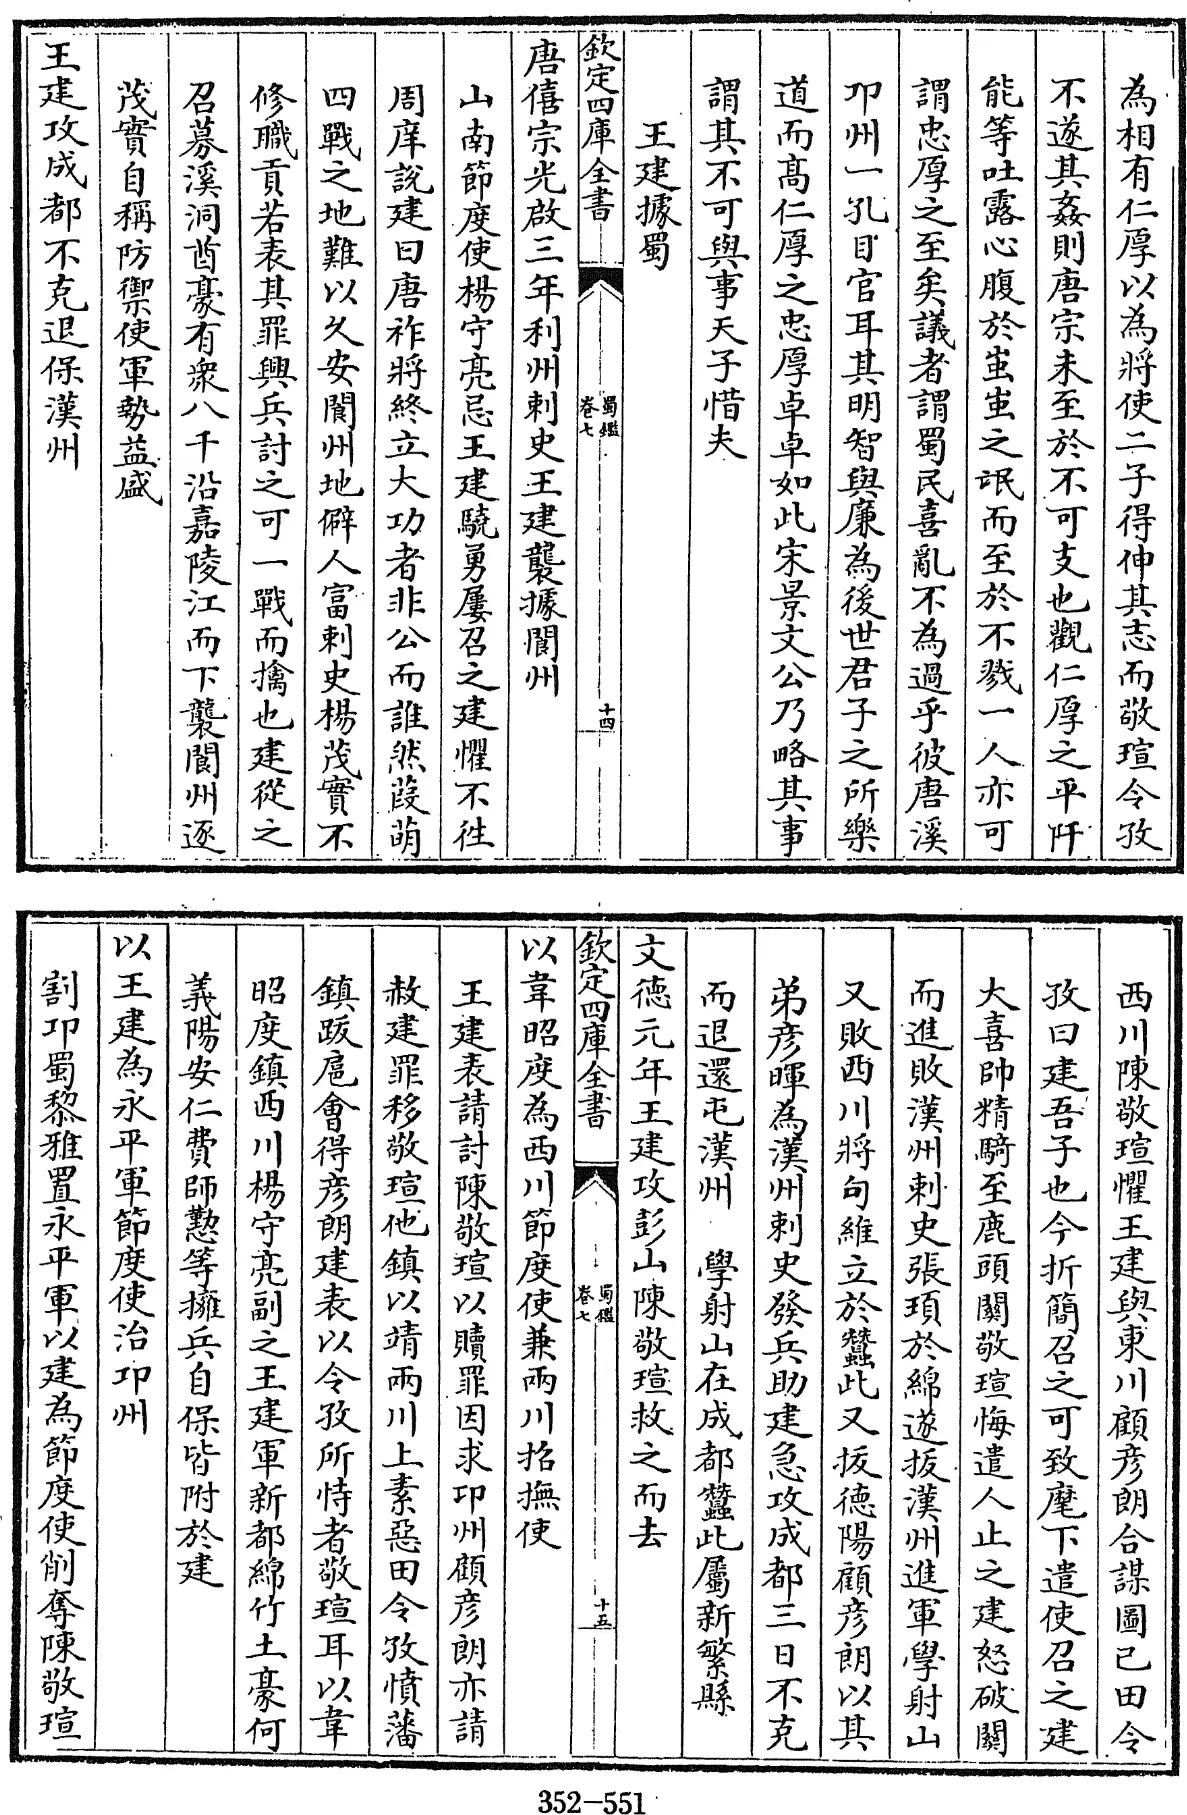 為相有仁厚以為將使二子得伸其志而敬瑄令孜
不遂其姦則唐宗未至於不可支也觀仁厚之平阡
能等吐露心腹於蚩蚩之氓而至於不戮一人亦可
謂忠厚之至矣議者謂蜀民喜亂不為過乎彼唐溪
卭州一孔目官耳其明智與廉為後世君子之所樂
道而髙仁厚之忠厚卓卓如此宋景文公乃略其事
謂其不可與事天子惜夫
王建據蜀
欽定四庫全書
蜀鑑
卷七
十四
唐僖宗光啟三年利州刺史王建襲據閬州
山南節度使楊守亮忌王建驍勇屢召之建懼不徃
周庠說建曰唐祚將終立大功者非公而誰然葭萌
四戰之地難以久安閬州地僻人富刺史楊茂實不
修職貢若表其罪興兵討之可一戰而擒也建從之
召募溪洞酋豪有衆八千沿嘉陵江而下襲閬州逐
茂實自稱防禦使軍勢益盛
王建攻成都不克退保漢州
西川陳敬瑄懼王建與東川顧彦朗合謀圖已田令
孜曰建吾子也今折簡召之可致麾下遣使召之建
大喜帥精騎至鹿頭關敬瑄悔遣人止之建怒破關
而進敗漢州刺史張頊於綿遂拔漢州進軍學射山
又敗西川將句維立於蠶此又拔德陽顧彦朗以其
弟彦暉為漢州刺史發兵助建急攻成都三日不克
而退還屯漢州　學射山在成都蠶此屬新繁縣
文德元年王建攻彭山陳敬瑄救之而去
欽定四庫全書
蜀鑑
卷七
十五
以韋昭度為西川節度使兼兩川招撫使
王建表請討陳敬瑄以贖罪因求卭州顧彦朗亦請
赦建罪移敬瑄他鎮以靖兩川上素惡田令孜憤藩
鎮跋扈會得彦朗建表以令孜所恃者敬瑄耳以韋
昭度鎮西川楊守亮副之王建軍新都綿竹土豪何
義陽安仁費師懃等擁兵自保皆附於建
以王建為永平軍節度使治卭州
割卭蜀黎雅置永平軍以建為節度使削奪陳敬瑄
352-551